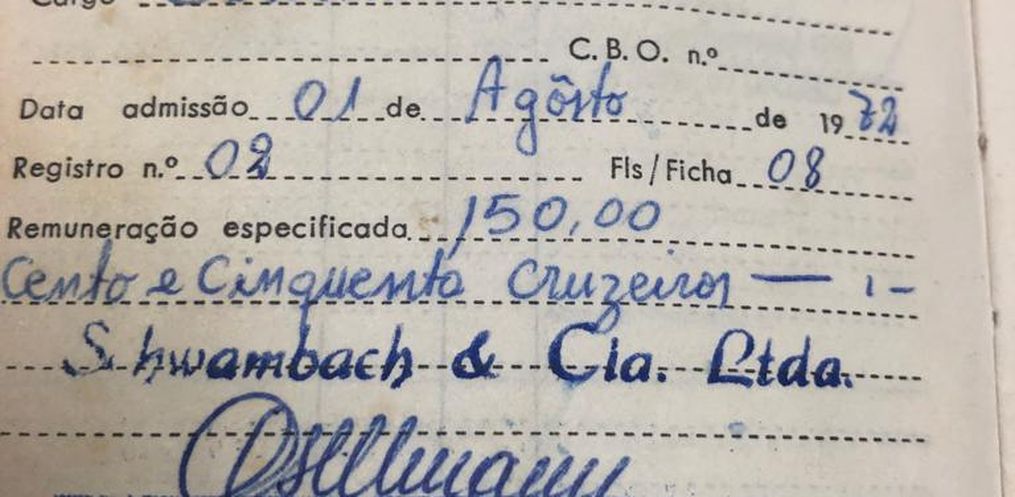 Cargo
C.B.O. n.º
Data admissão 01 de Agôsto de 1972
Registro n.º 02 Fls/Ficha 08
Remuneração especificada 150,00
Cento e Cinquenta Cruzeiros
Shwambach & Cia. Ltda.